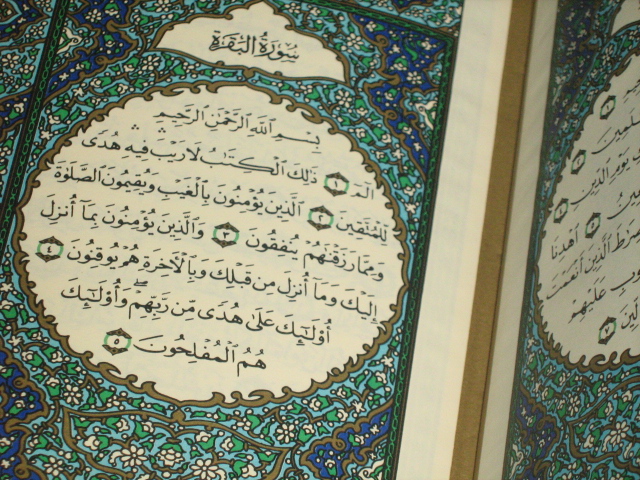 سُورَةُ البَقَرَةِ
بِسْمِ ٱللَّهِ ٱلرَّحْمَٰنِ ٱلرَّحِيمِ
الٓمٓ ١ ذَٰلِكَ ٱلْكِتَٰبُ لَا رَيْبَ ۛ فِيهِ ۛ هُدًى
لِّلْمُتَّقِينَ ٢ ٱلَّذِينَ يُؤْمِنُونَ بِٱلْغَيْبِ وَيُقِيمُونَ ٱلصَّلَوٰةَ
وَمِمَّا رَزَقْنَٰهُمْ يُنفِقُونَ ٣ وَٱلَّذِينَ يُؤْمِنُونَ بِمَآ أُنزِلَ
إِلَيْكَ وَمَآ أُنزِلَ مِن قَبْلِكَ وَبِٱلْأٓخِرَةِ هُمْ يُوقِنُونَ ٤
أُو۟لَٰٓئِكَ عَلَىٰ هُدًى مِّن رَّبِّهِمْ ۖ وَأُو۟لَٰٓئِكَ
هُمُ ٱلْمُفْلِحُونَ ٥
يَوْمِ ٱلدِّينِ ٤
ٱهْدِنَا
ٱلَّذِينَ أَنْعَمْتَ
عَلَيْهِمْ
٧